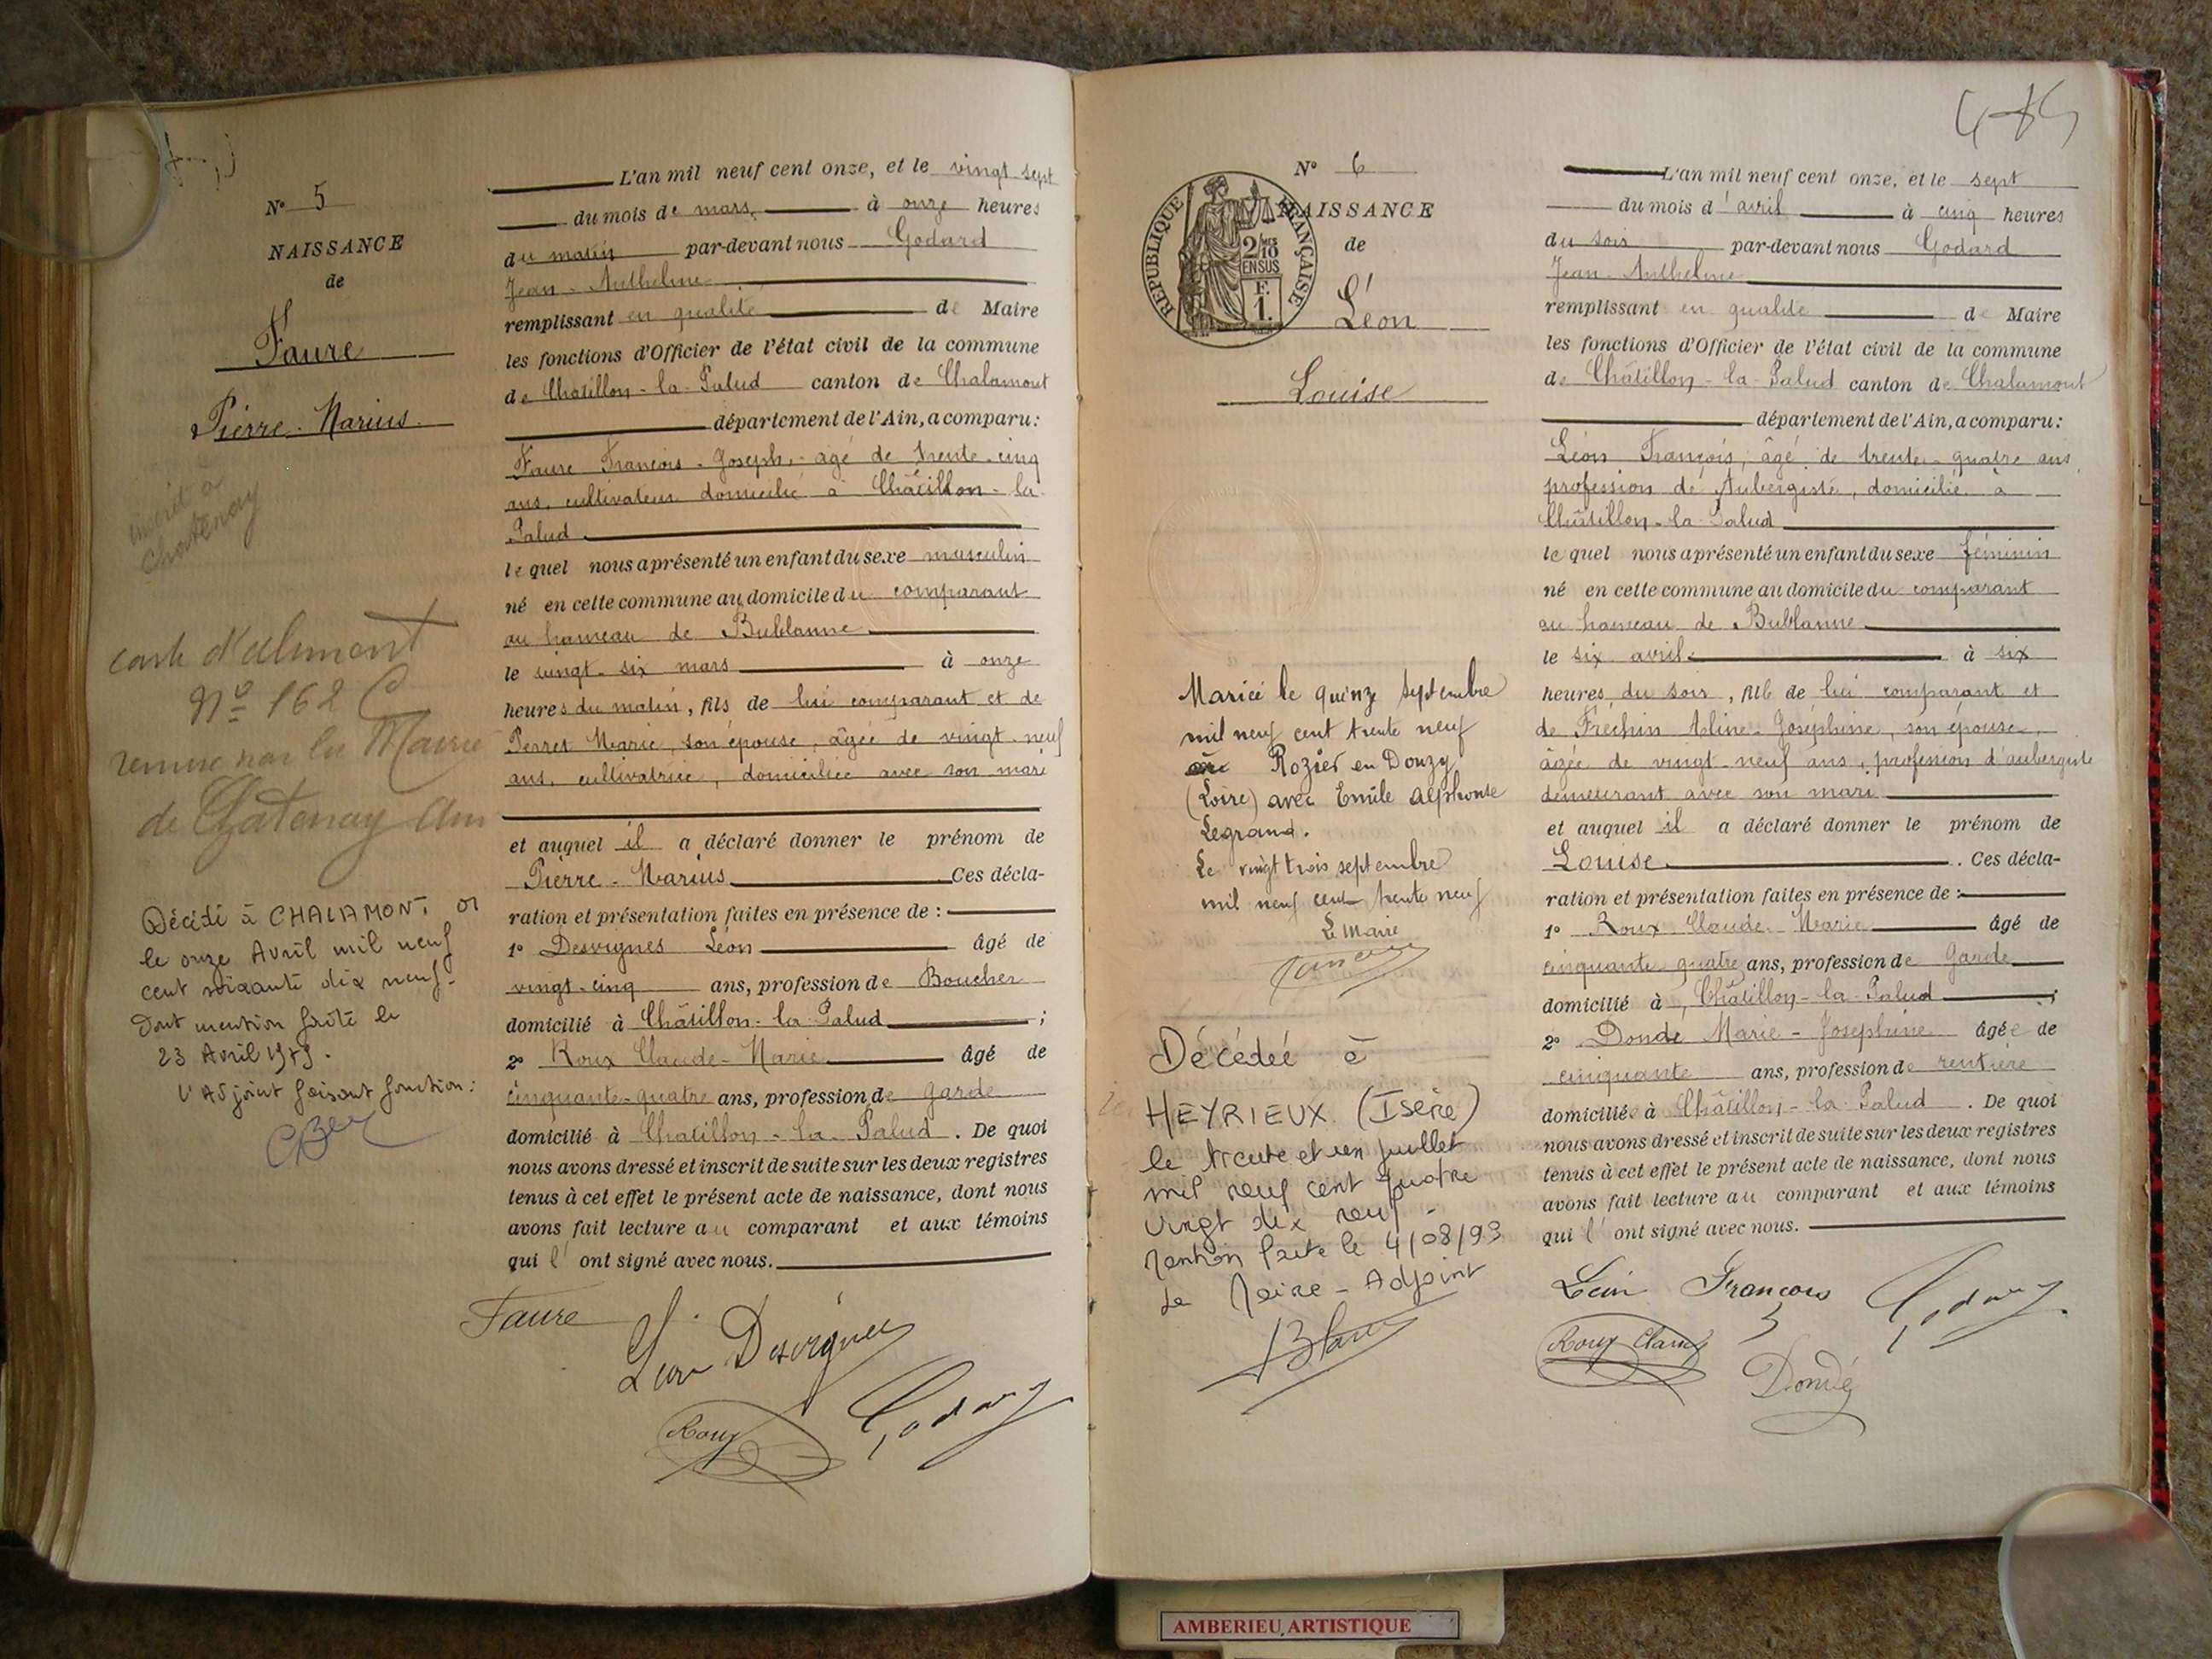 N° 5
NAISSANCE
de
Faure
Pierre-Marius
Chatenay
carte d'aliment
N° 162 C
remise par la Mairie
de Chatenay Ain
Décédé à CHALAMONT 01
le onze Avril mil neuf
cent soixante dix neuf.
Dont mention faite le
23 Avril 1979.
l'Adjoint faisant fonction:
L'an mil neuf cent onze, et le vingt-sept
du mois de mars, à onze heures
du matin par-devant nous Godard
Jean-Anthelme
remplissant en qualité de Maire
les fonctions d'Officier de l'état civil de la commune
de Châtillon-la-Palud canton de Chalamont
département de l'Ain, a comparu:
Faure François-Joseph, âgé de trente-cinq
ans, cultivateur domicilié à Châtillon-la-
Palud
lequel nous a présenté un enfant du sexe masculin
né en cette commune au domicile du comparant
au hameau de Bublanne
le vingt-six mars à onze
heures du matin, fils de lui comparant et de
Perret Marie, son épouse, âgée de vingt-neuf
ans, cultivatrice, domiciliée avec son mari
et auquel il a déclaré donner le prénom de
Pierre-Marius Ces décla-
ration et présentation faites en présence de :
1° Desvignes Léon âgé de
vingt-cinq ans, profession de Boucher
domicilié à Châtillon-la-Palud ;
2° Roux Claude-Marie âgé de
cinquante-quatre ans, profession de garde
domicilié à Chatillon-la-Palud . De quoi
nous avons dressé et inscrit de suite sur les deux registres
tenus à cet effet le présent acte de naissance, dont nous
avons fait lecture au comparant et aux témoins
qui l' ont signé avec nous.
Faure
Léon Desvignes
Roux Godard
N° 6
NAISSANCE
de
RÉPUBLIQUE FRANÇAISE
2/10
EN SUS
F.
1.
Léon
Louise
Mariée le quinze septembre
mil neuf cent trente neuf
à Rozier en Donzy
(Loire) avec Emile Alphonse
Legrand.
Le vingt trois septembre
mil neuf cent trente neuf
Le Maire
Décédée à
HEYRIEUX (Isère)
le trente et un juillet
mil neuf cent quatre
vingt dix neuf
mention faite le 4/08/99
Le Maire-Adjoint
L'an mil neuf cent onze, et le sept
du mois d'avril à cinq heures
du soir par-devant nous Godard
Jean-Anthelme
remplissant en qualité de Maire
les fonctions d'Officier de l'état civil de la commune
de Châtillon-la-Palud canton de Chalamont
département de l'Ain, a comparu:
Léon François, âgé de trente-quatre ans,
profession de Aubergiste, domicilié à
Châtillon-la-Palud
lequel nous a présenté un enfant du sexe féminin
né en cette commune au domicile du comparant
au hameau de Bublanne
le six avril à six
heures du soir, fille de lui comparant et
de Fréchin Aline-Joséphine, son épouse,
âgée de vingt-neuf ans, profession d'aubergiste
demeurant avec son mari
et auquel il a déclaré donner le prénom de
Louise . Ces décla-
ration et présentation faites en présence de :
1° Roux Claude-Marie âgé de
cinquante quatre ans, profession de Garde
domicilié à Châtillon-la-Palud ;
2° Donde Marie-Joséphine âgée de
cinquante ans, profession de rentière
domiciliée à Châtillon-la-Palud . De quoi
nous avons dressé et inscrit de suite sur les deux registres
tenus à cet effet le présent acte de naissance, dont nous
avons fait lecture au comparant et aux témoins
qui l' ont signé avec nous.
Léon François Godard
Roux Claude
Dondé
AMBERIEU ARTISTIQUE